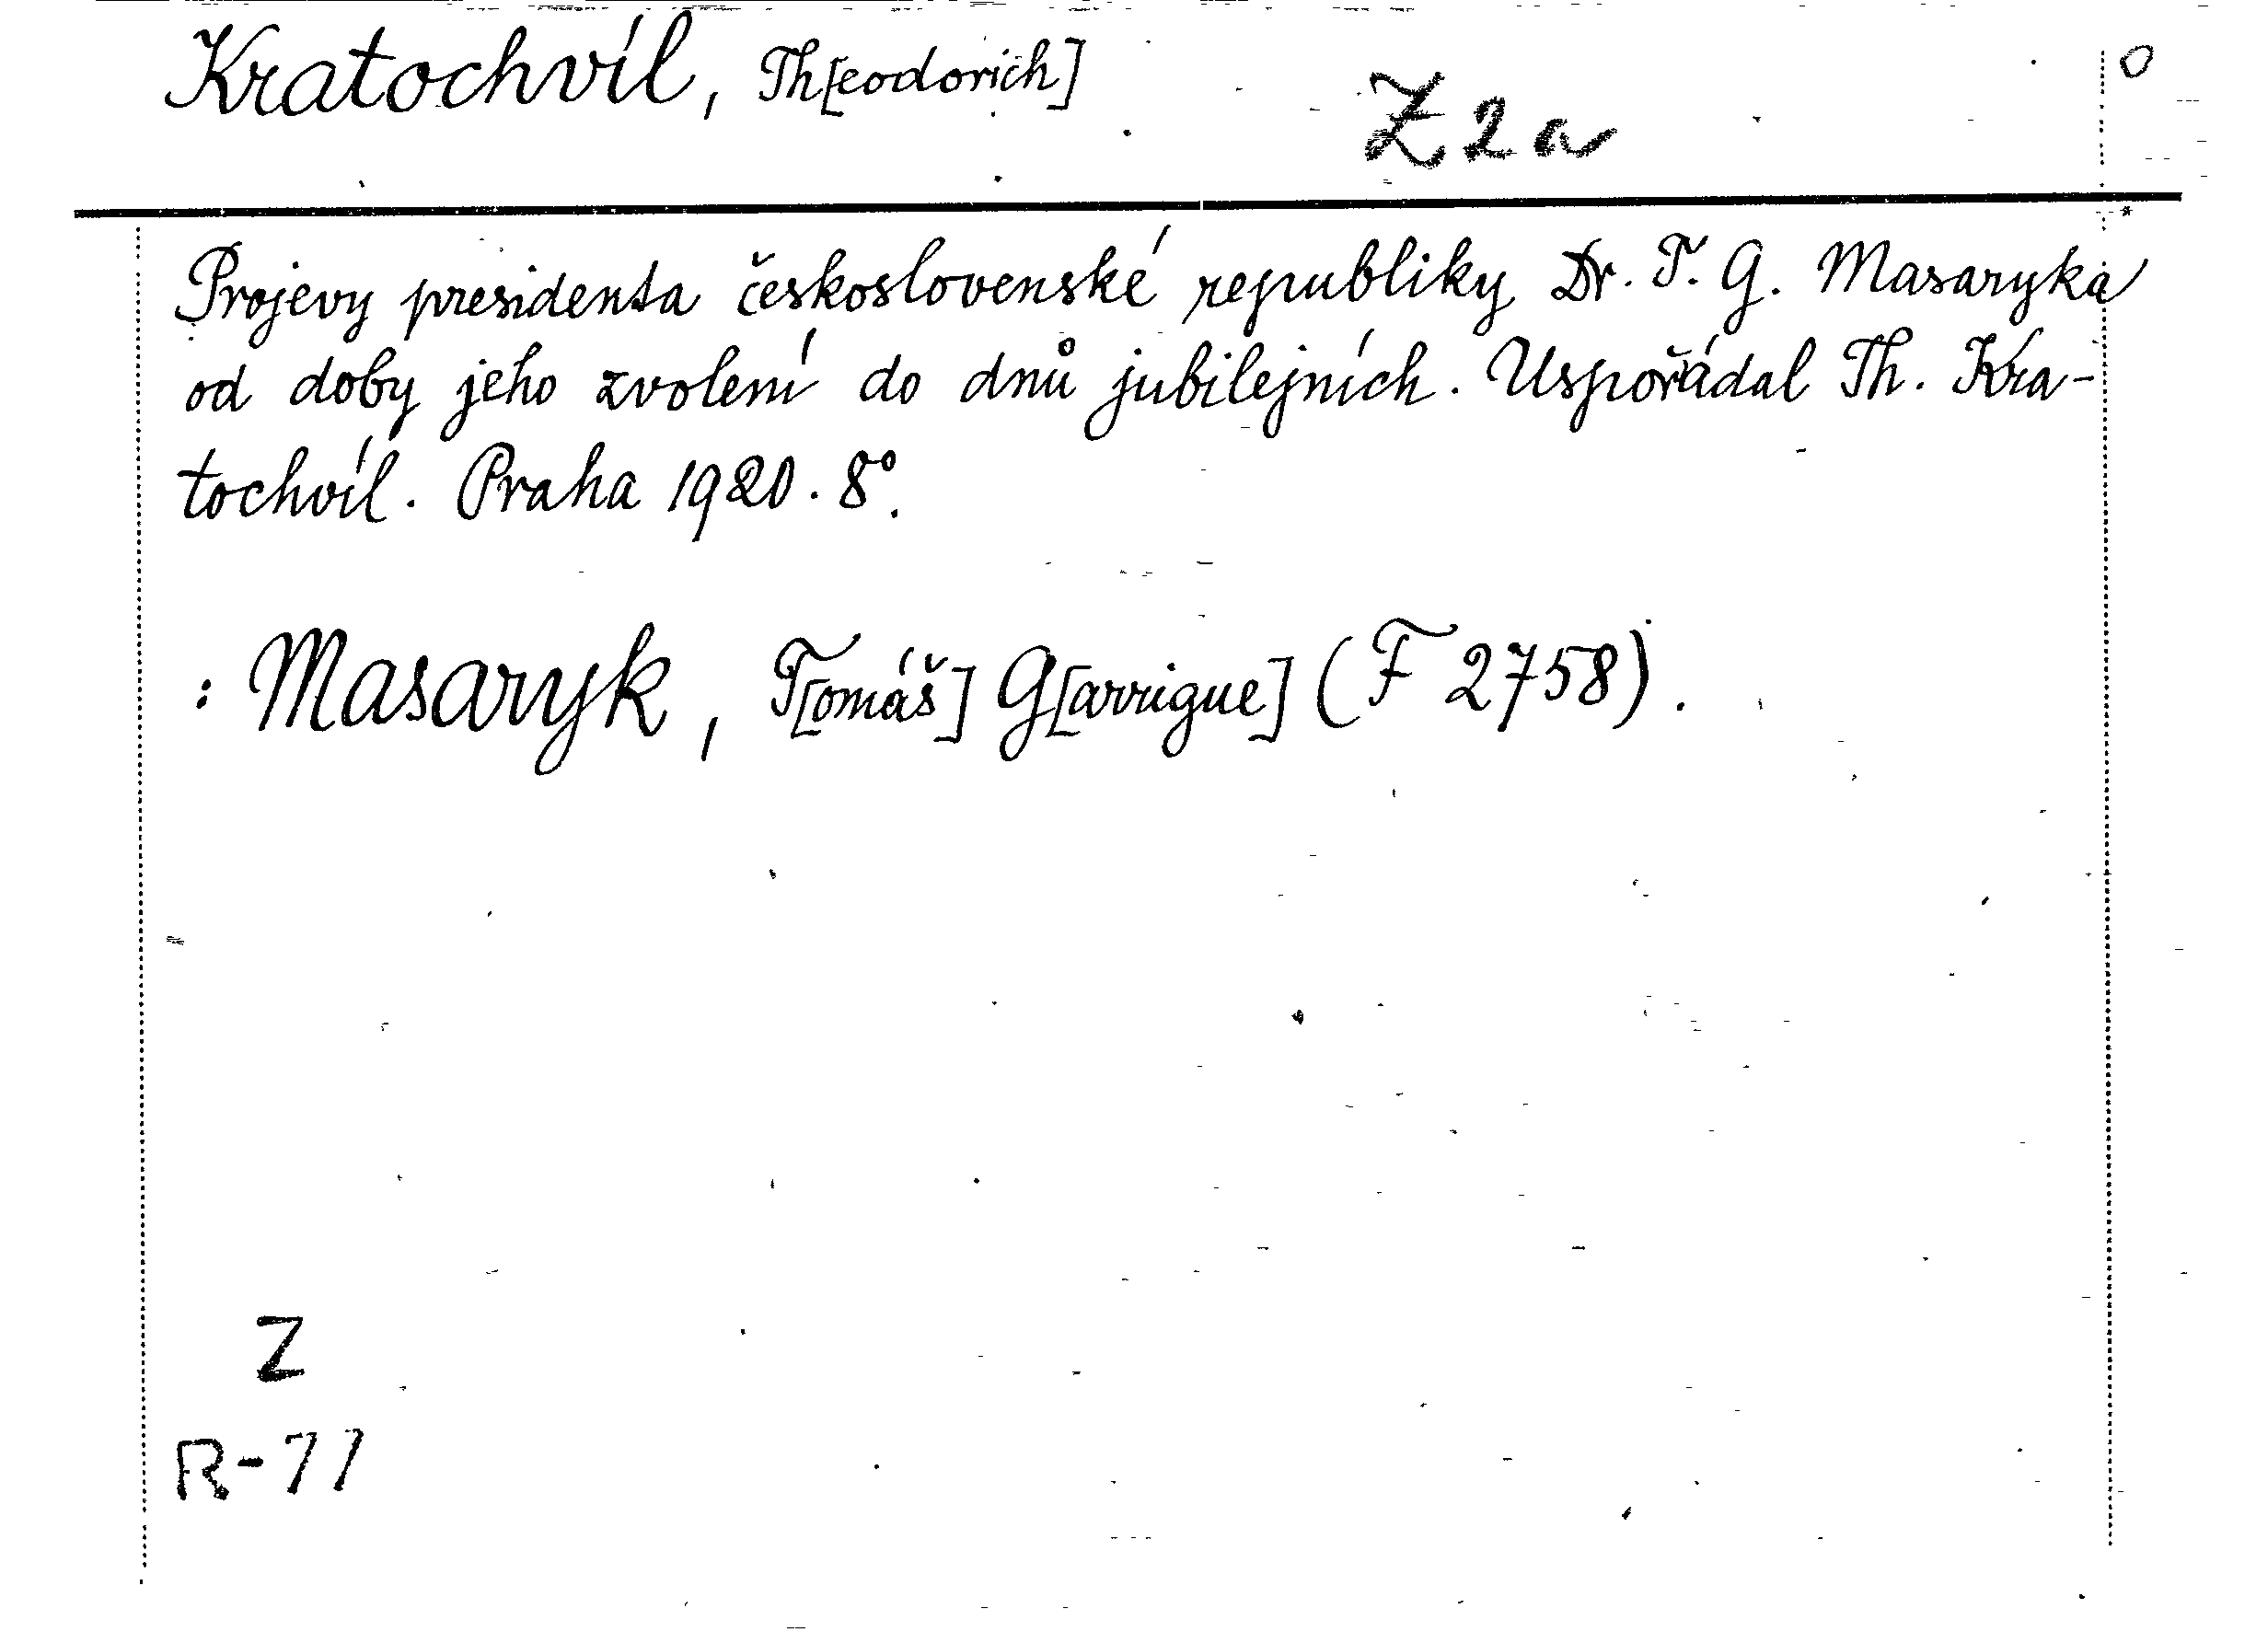 Kratochvíl, Th[eodorich]
Z 2a
Projevy presidenta československé republiky Dr. T. G. Masaryka
od doby jeho zvolení do dnů jubilejních. Uspořádal Th. Kra-
tochvíl. Praha 1920. 8°.
: Masaryk, T[omáš] G[arrigue] (F 2758).
Z
R-77